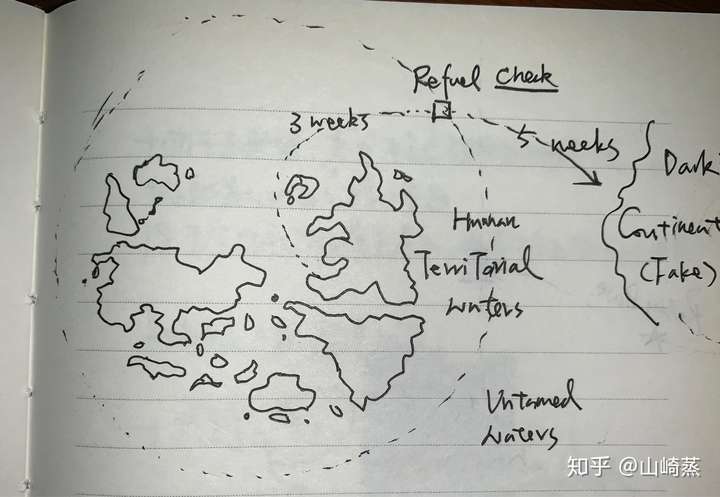 Refuel Check
3 weeks
5 weeks
Dark
Continent
(Fake)
Human
Territorial
waters
Untamed
waters
知乎 @山崎蒸